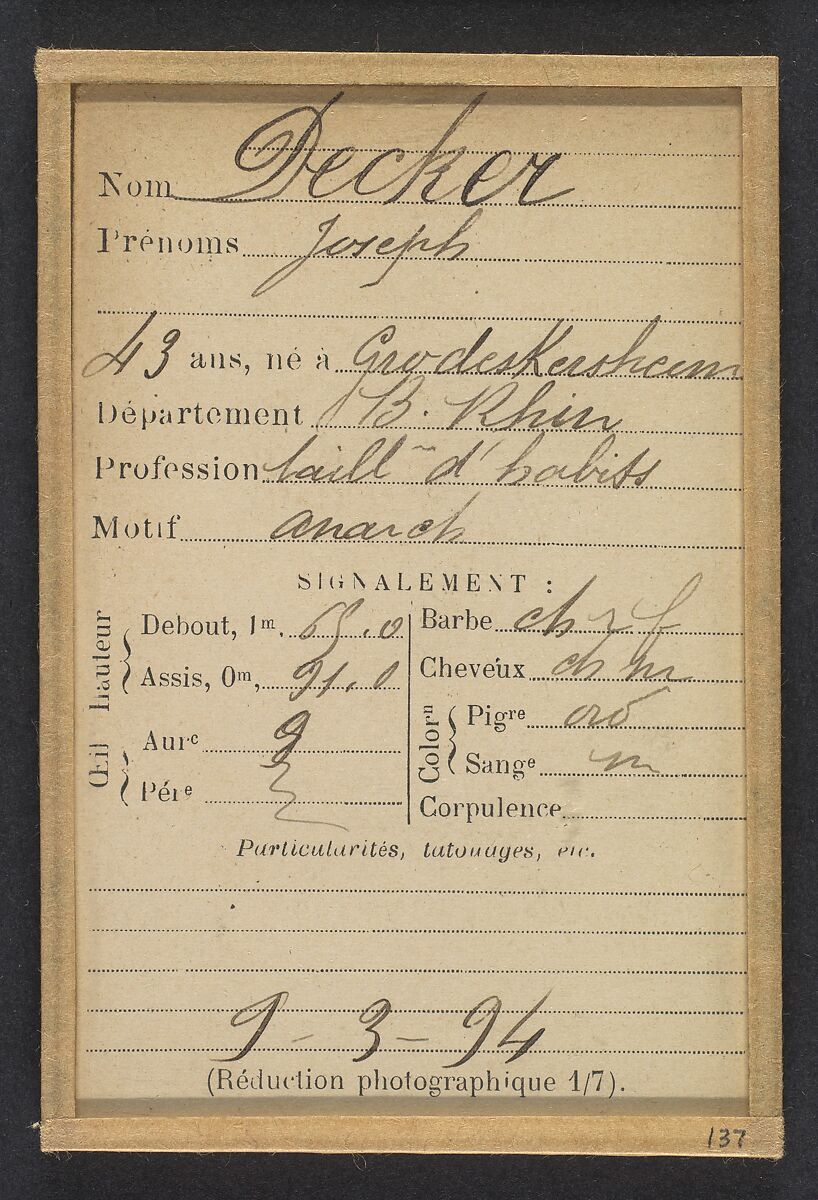 Nom Decker
Prénoms Joseph
43 ans, né à Grodeskersheim
Département B. Rhin
Profession taillr d'habits
Motif anarch
SIGNALEMENT :
hauteur
Debout, 1m, 65.0
Assis, 0m, 91.0
Œil
Aurc
Pére
Barbe ch
Cheveux ch m
Colorn
Pigre
Sange m
Corpulence
Particularités, tatouages, etc.
9-3-94
(Réduction photographique 1/7).
137